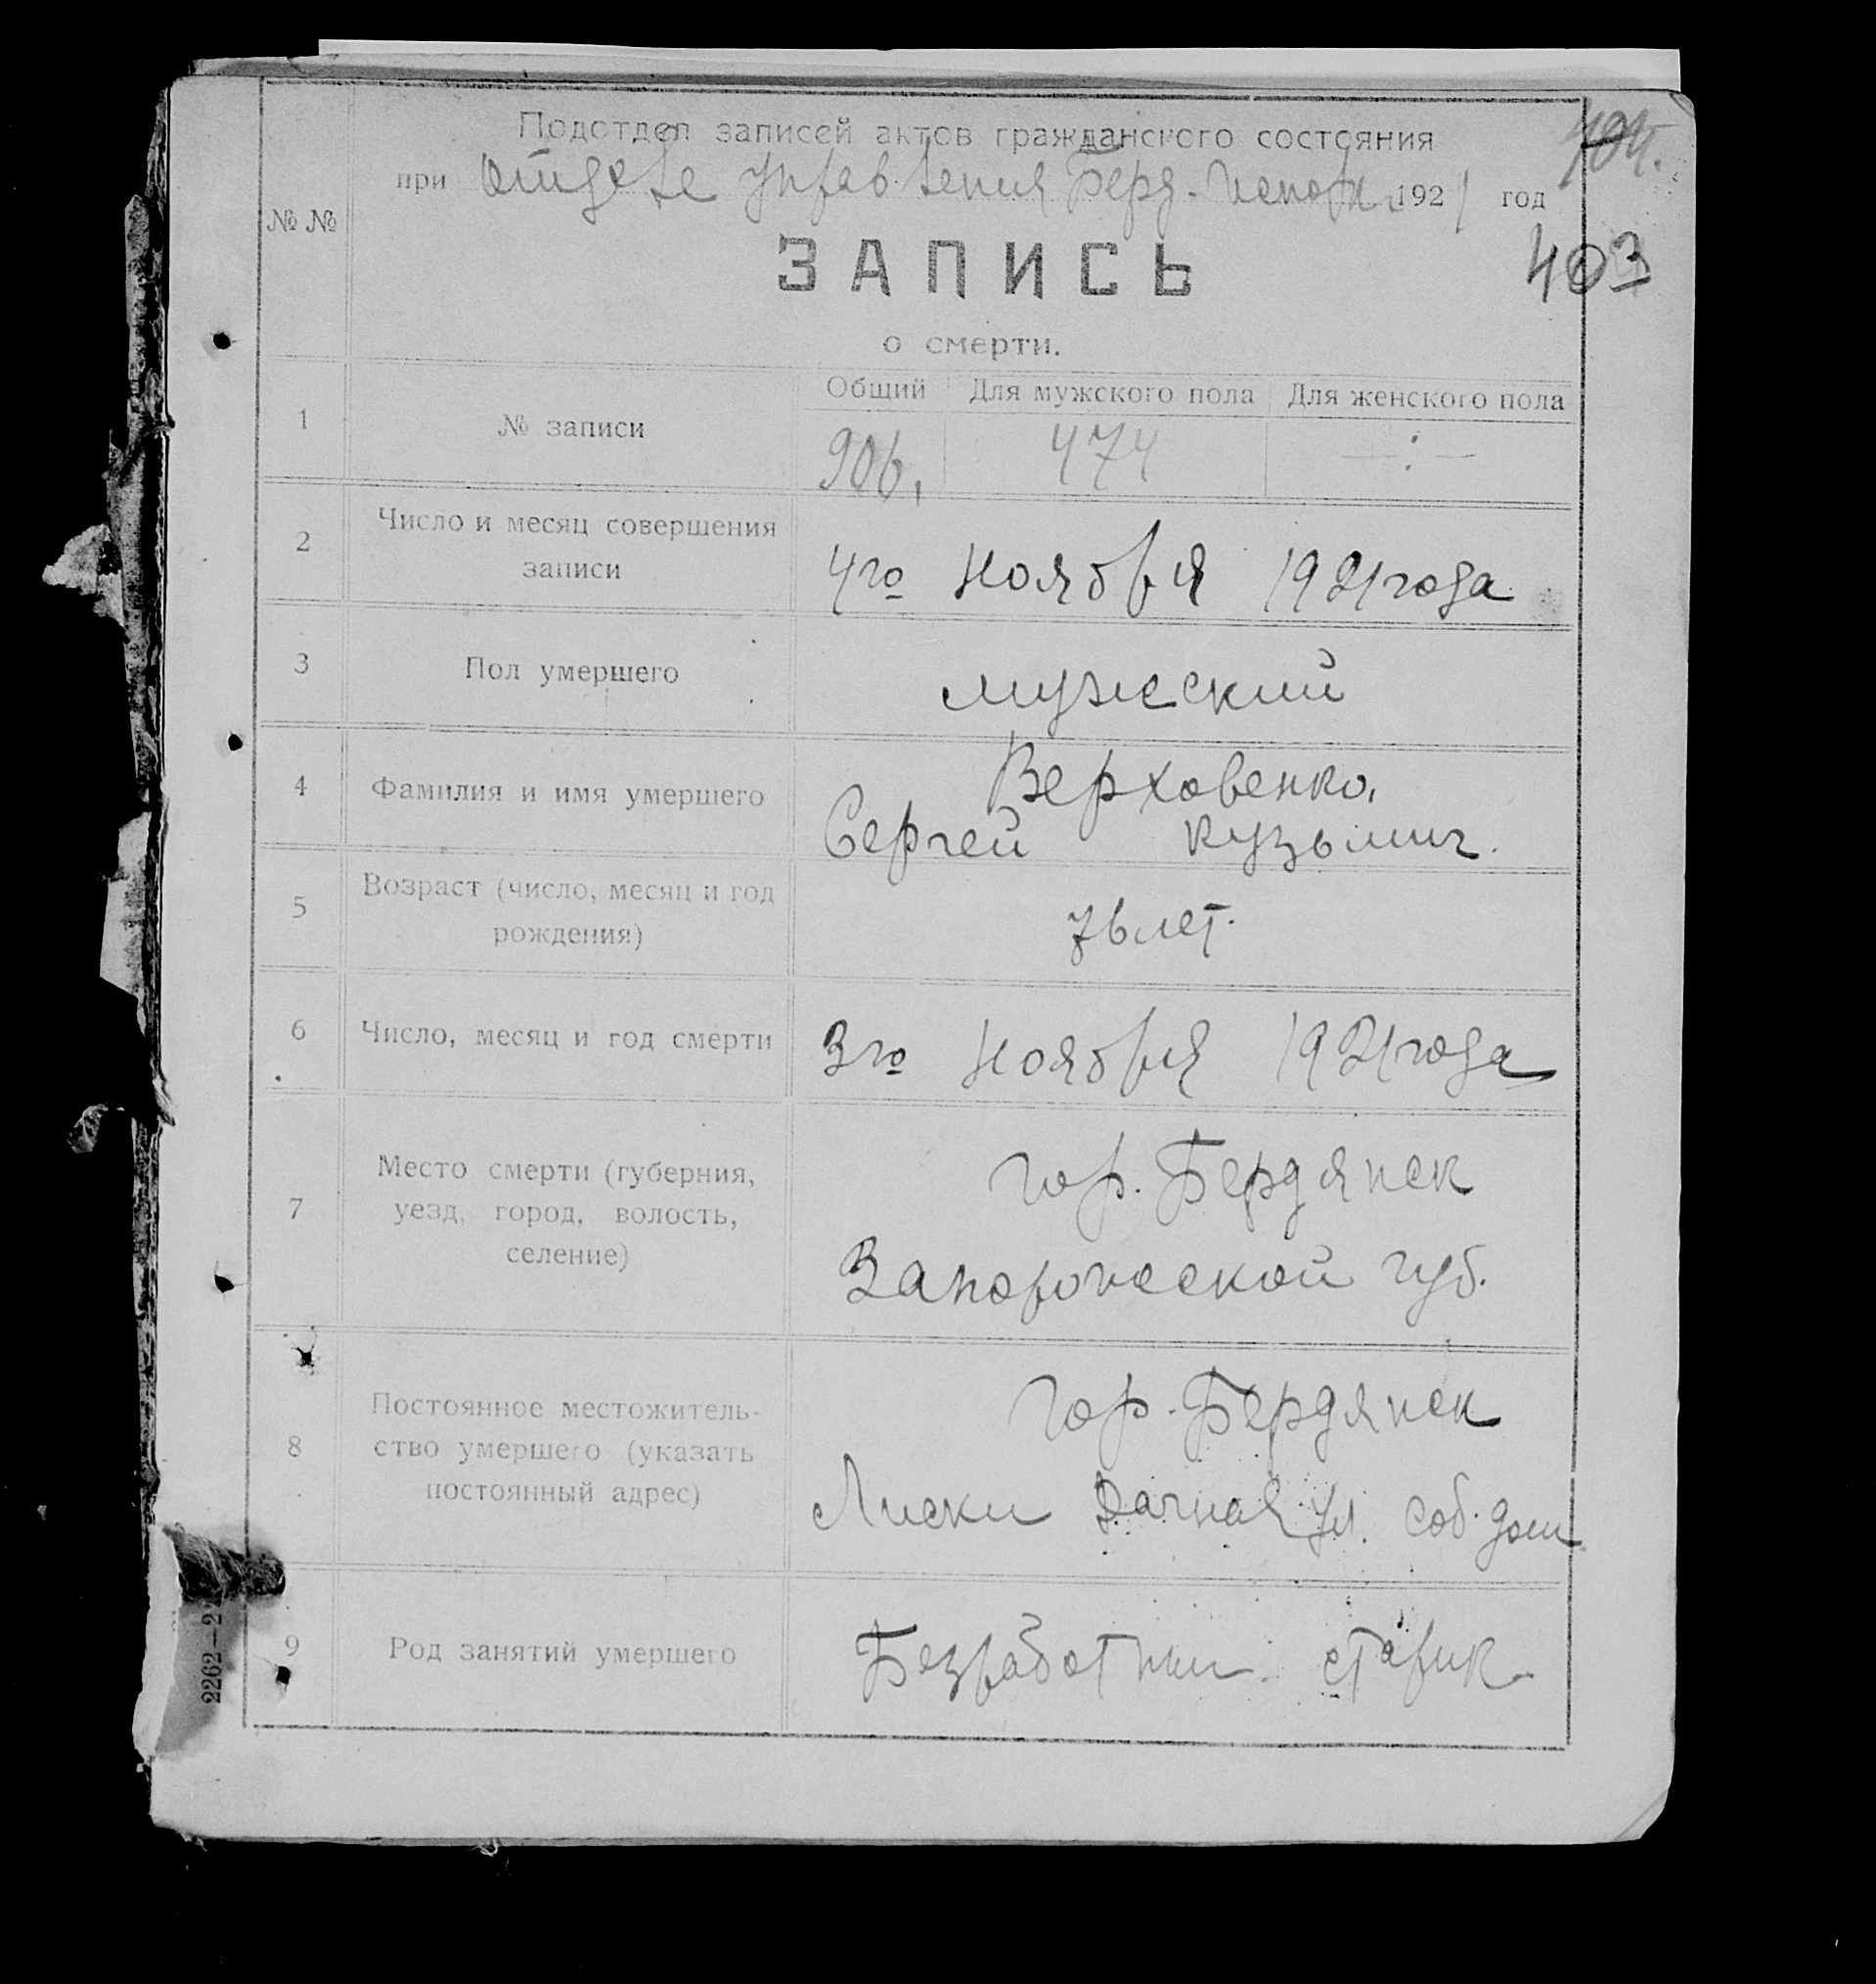 Подотдел записей актов гражданского состояния
при Отделе Управления Берд. Исполк. 1921 год
404.
№ №
403
ЗАПИСЬ
о смерти.
Общий Для мужского пола Для женского пола
1 № записи 906. 474 —:—
2 Число и месяц совершения
записи
4го Ноября 1921 года
3 Пол умершего мужеский
4 Фамилия и имя умершего
Верховенко,
Сергей Кузьмич.
5 Возраст (число, месяц и год
рождения)
76 лет.
6 Число, месяц и год смерти 3го Ноября 1921 года
7 Место смерти (губерния,
уезд, город, волость,
селение)
гор. Бердянск
Запорожеской губ.
8 Постоянное местожитель-
ство умершего (указать
постоянный адрес)
гор. Бердянск
Лиски Дачная ул. соб. дом
9 Род занятий умершего Безработный старик
2262-2